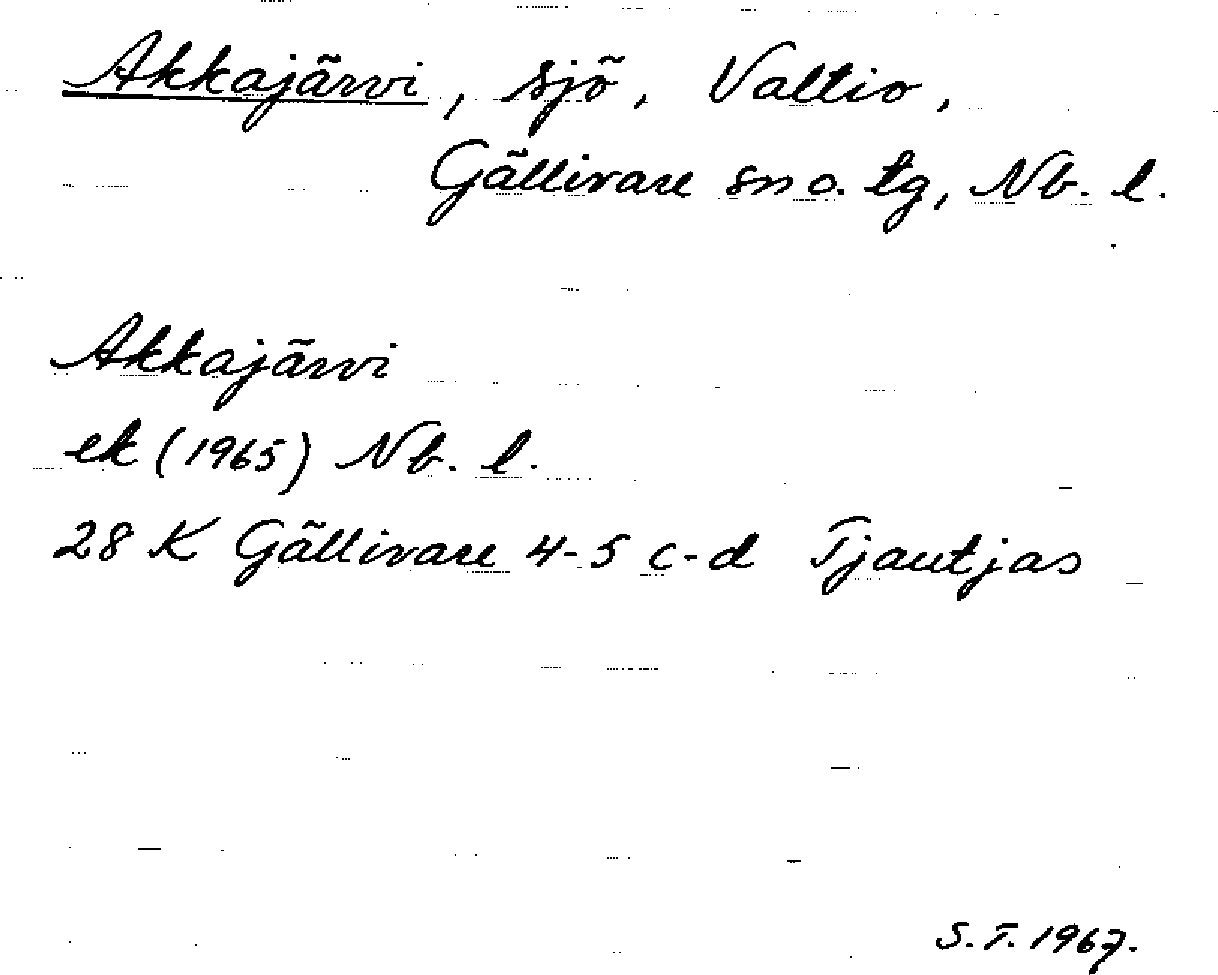 Akkajärvi, sjö, Valtio,
Gällivare sn o. tg, Nb. l.
Akkajärvi
ek (1965) Nb. l.
28 K Gällivare 4-5 c-d Tjautjas
S.T. 1967.